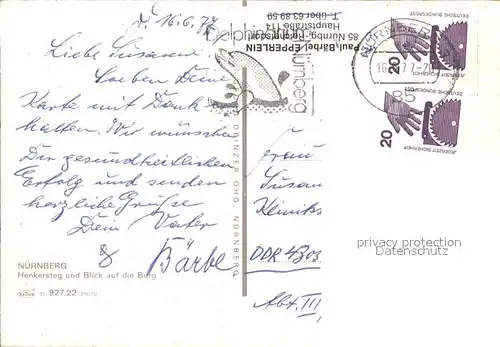 N. 16.6.77
Liebe Susanne
Soeben Deine
Karte mit Dank er-
halten. Wir wünschen
Dir gesundheitlichen
Erfolg und senden
herzliche Grüße
Dein Vater
& Bärbel
NÜRNBERG
Henkersteg und Blick auf die Burg
927.22
DRINZER OHG, NÜRNBERG
Paul, Bärbel EPPERLEIN
Hauptstraße
85 Nürnbg.-
T. über 63 89 59
Nürnberg
DEUTSCHE BUNDESPOST
20
JEDERZEIT SICHERHEIT
DEUTSCHE BUNDESPOST
20
JEDERZEIT SICHERHEIT
Frau
Susan
DDR 4303
Abt. III
privacy protection
watermark